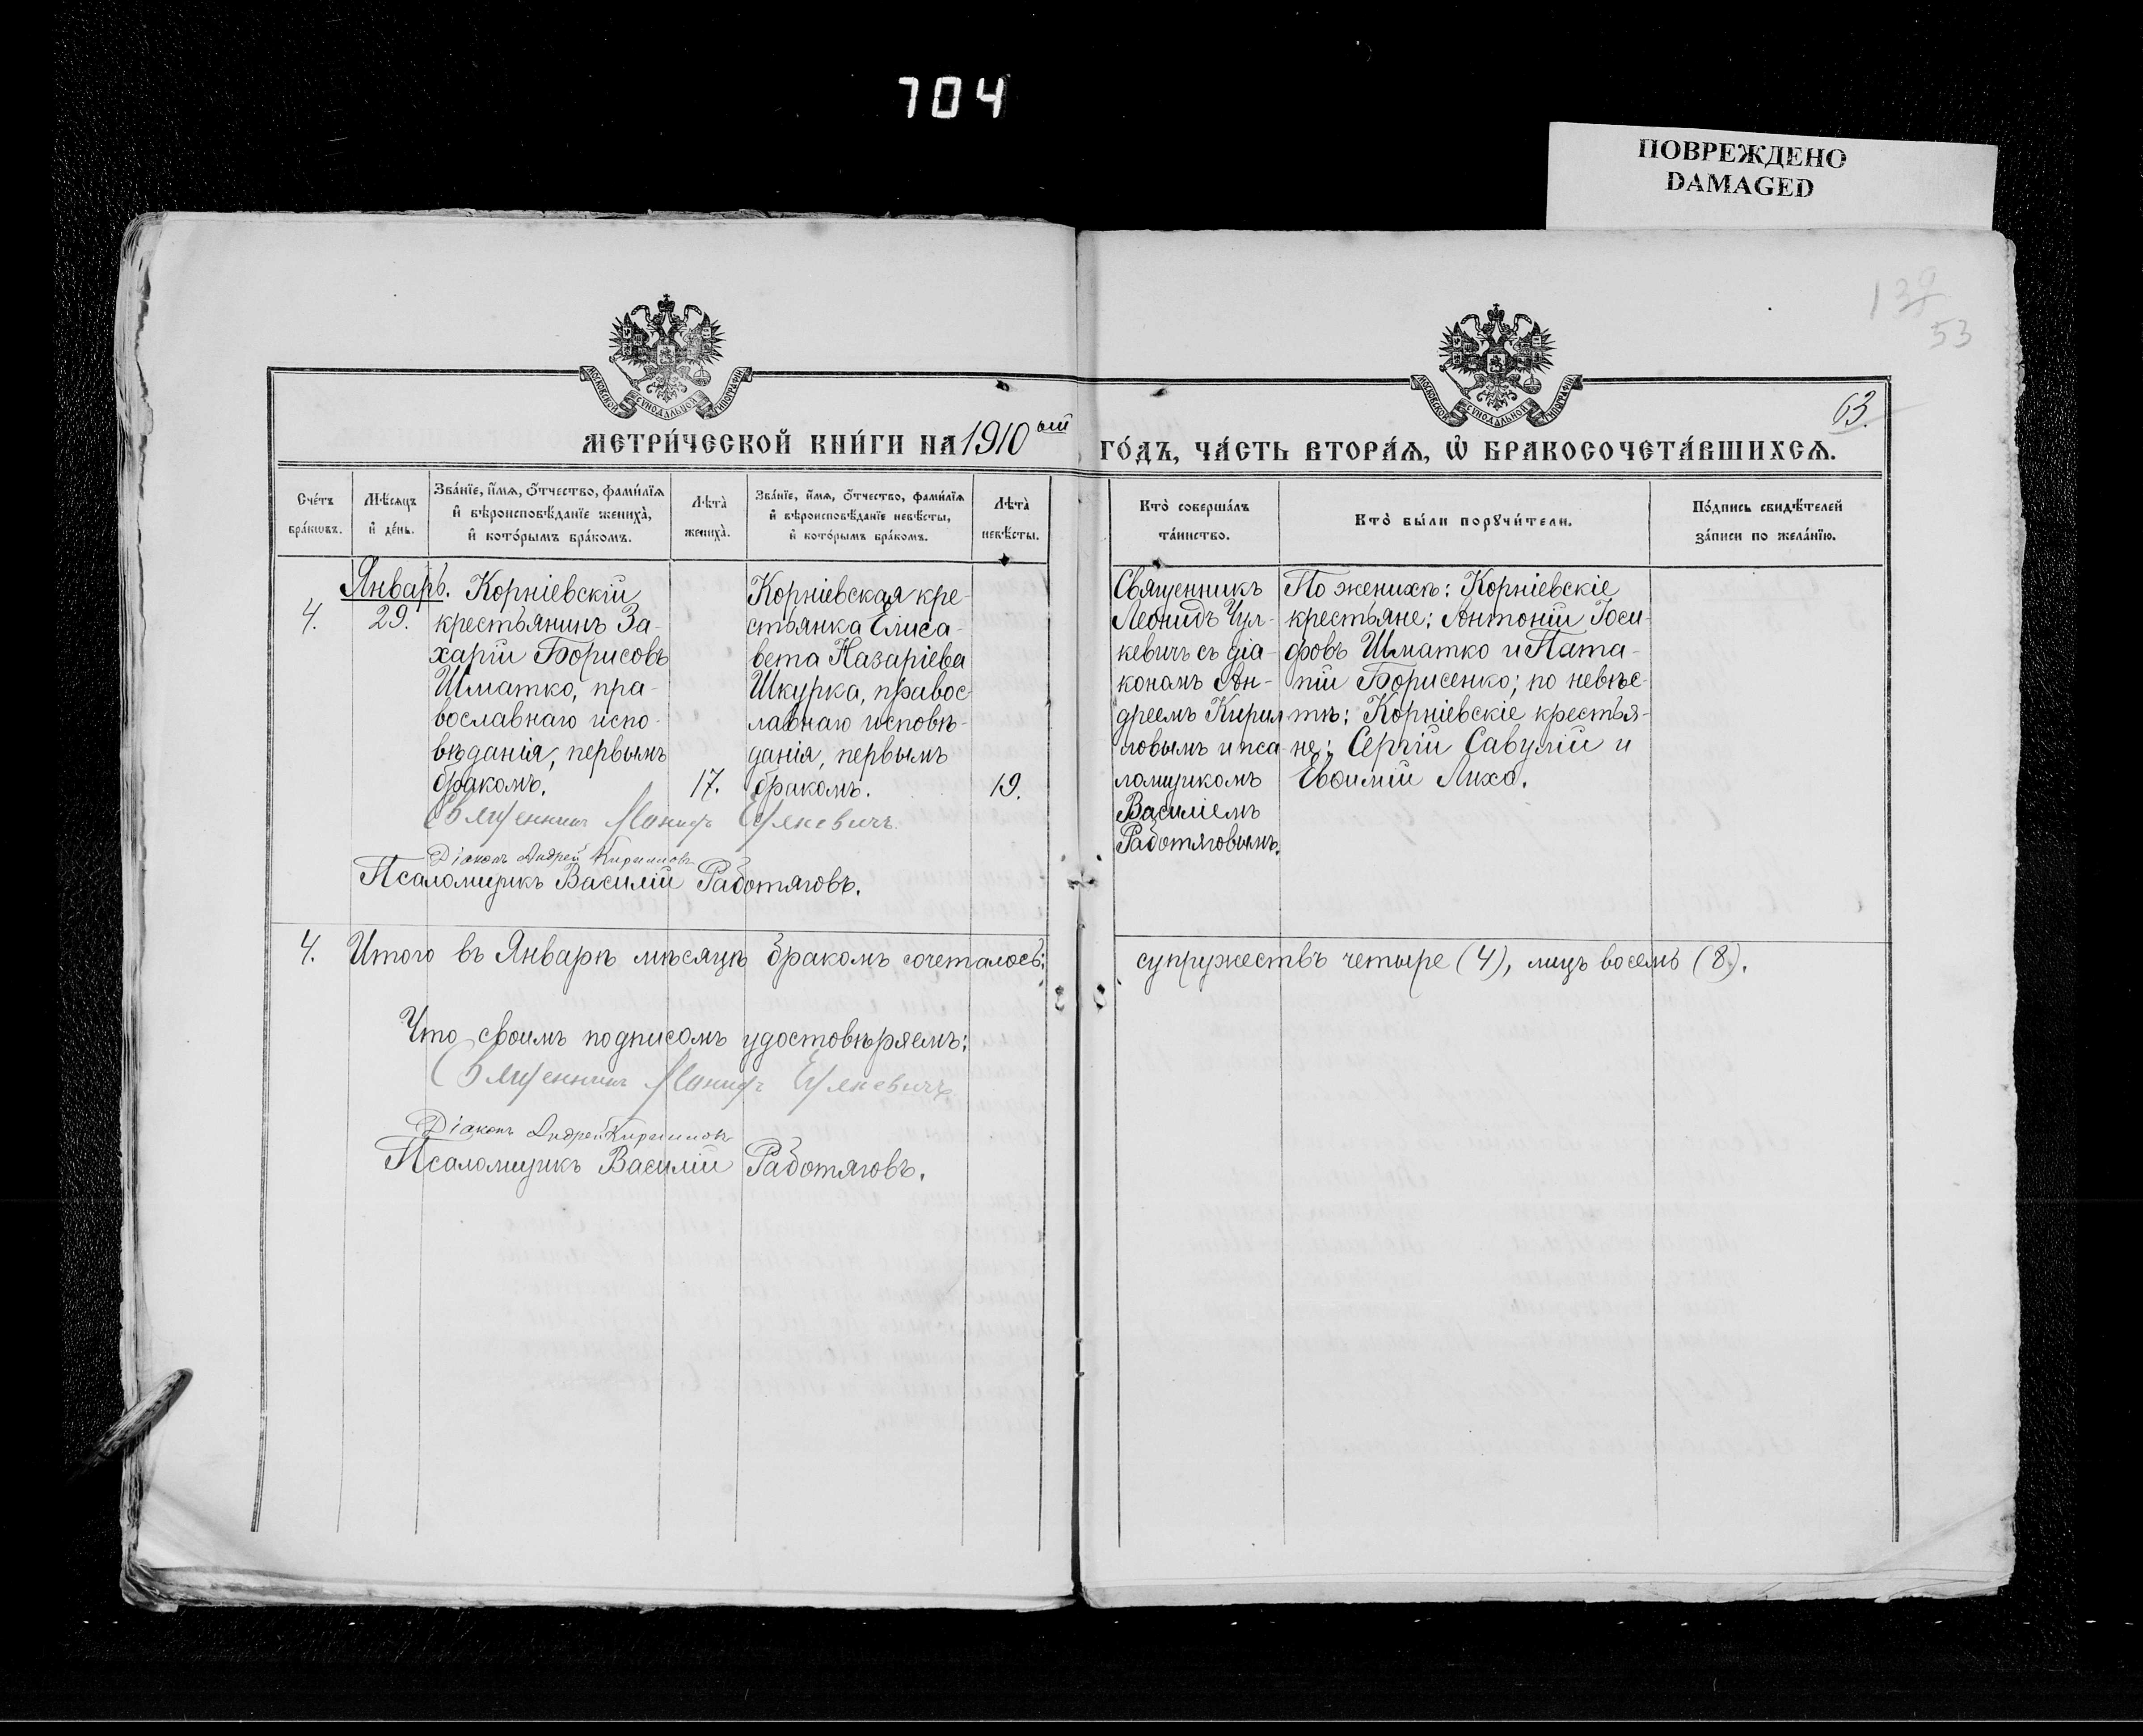 704
ПОВРЕЖДЕНО
DAMAGED
139
53
63.
МОСКОВСКОЙ СѴНОДАЛЬНОЙ ТИПОГРАФІИ
МОСКОВСКОЙ СѴНОДАЛЬНОЙ ТИПОГРАФІИ
МЕТРИ́ЧЕСКОЙ КНИ́ГИ НА 1910ый ГО́ДЪ, ЧА́СТЬ ВТОРА́Ѧ, Ѽ БРАКОСОЧЕТА́ВШИХСѦ.
Сче́тъ
бра́кѡвъ.
Мѣ́сѧцъ
и҆ де́нь.
Зва́нїе, и҆́мѧ, ѻ҆́тчество, фами́лїѧ
и҆ вѣроисповѣ́данїе жениха̀,
и҆ кото́рымъ бра́комъ.
Лѣ́та
жениха̀.
Зва́нїе, и҆́мѧ, ѻ҆́тчество, фами́лїѧ
и҆ вѣроисповѣ́данїе невѣ́сты,
и҆ кото́рымъ бра́комъ.
Лѣ́та
невѣ́сты.
Кто̀ соверша́лъ
та́инство.
Кто̀ бы́ли порꙋчи́тели.
По́дпись свидѣ́телей
за́писи по жела́нїю.
Январь.
4.
29.
Корніевскій
крестьянинъ За-
харій Борисовъ
Шматко, пра-
вославнаго испо-
вѣданія, первымъ
бракомъ.
17.
Корніевская кре-
стьянка Елиса-
вета Назаріева
Шкурка, правос-
лавнаго исповѣ-
данія, первымъ
бракомъ.
19.
Священникъ
Леонидъ Чул-
кевичъ съ діа-
кономъ Ан-
дреемъ Кирил-
ловымъ и пса-
ломщикомъ
Василіемъ
Работяговымъ.
По женихѣ: Корніевскіе
крестьяне: Антоній Іоси-
фовъ Шматко и Пата-
пій Борисенко; по невѣс-
тѣ: Корніевскіе крестья-
не: Сергій Савулій и
Евѳимій Лихо.
Священникъ
Діаконъ Андрей Кирилловъ
Псаломщикъ Василій Работяговъ.
4. Итого въ Январѣ мѣсяцѣ бракомъ сочеталось: супружествъ четыре (4), лицъ восемь (8).
Что своимъ подписомъ удостовѣряемъ:
Священникъ
Діаконъ Андрей Кирилловъ
Псаломщикъ Василій Работяговъ.